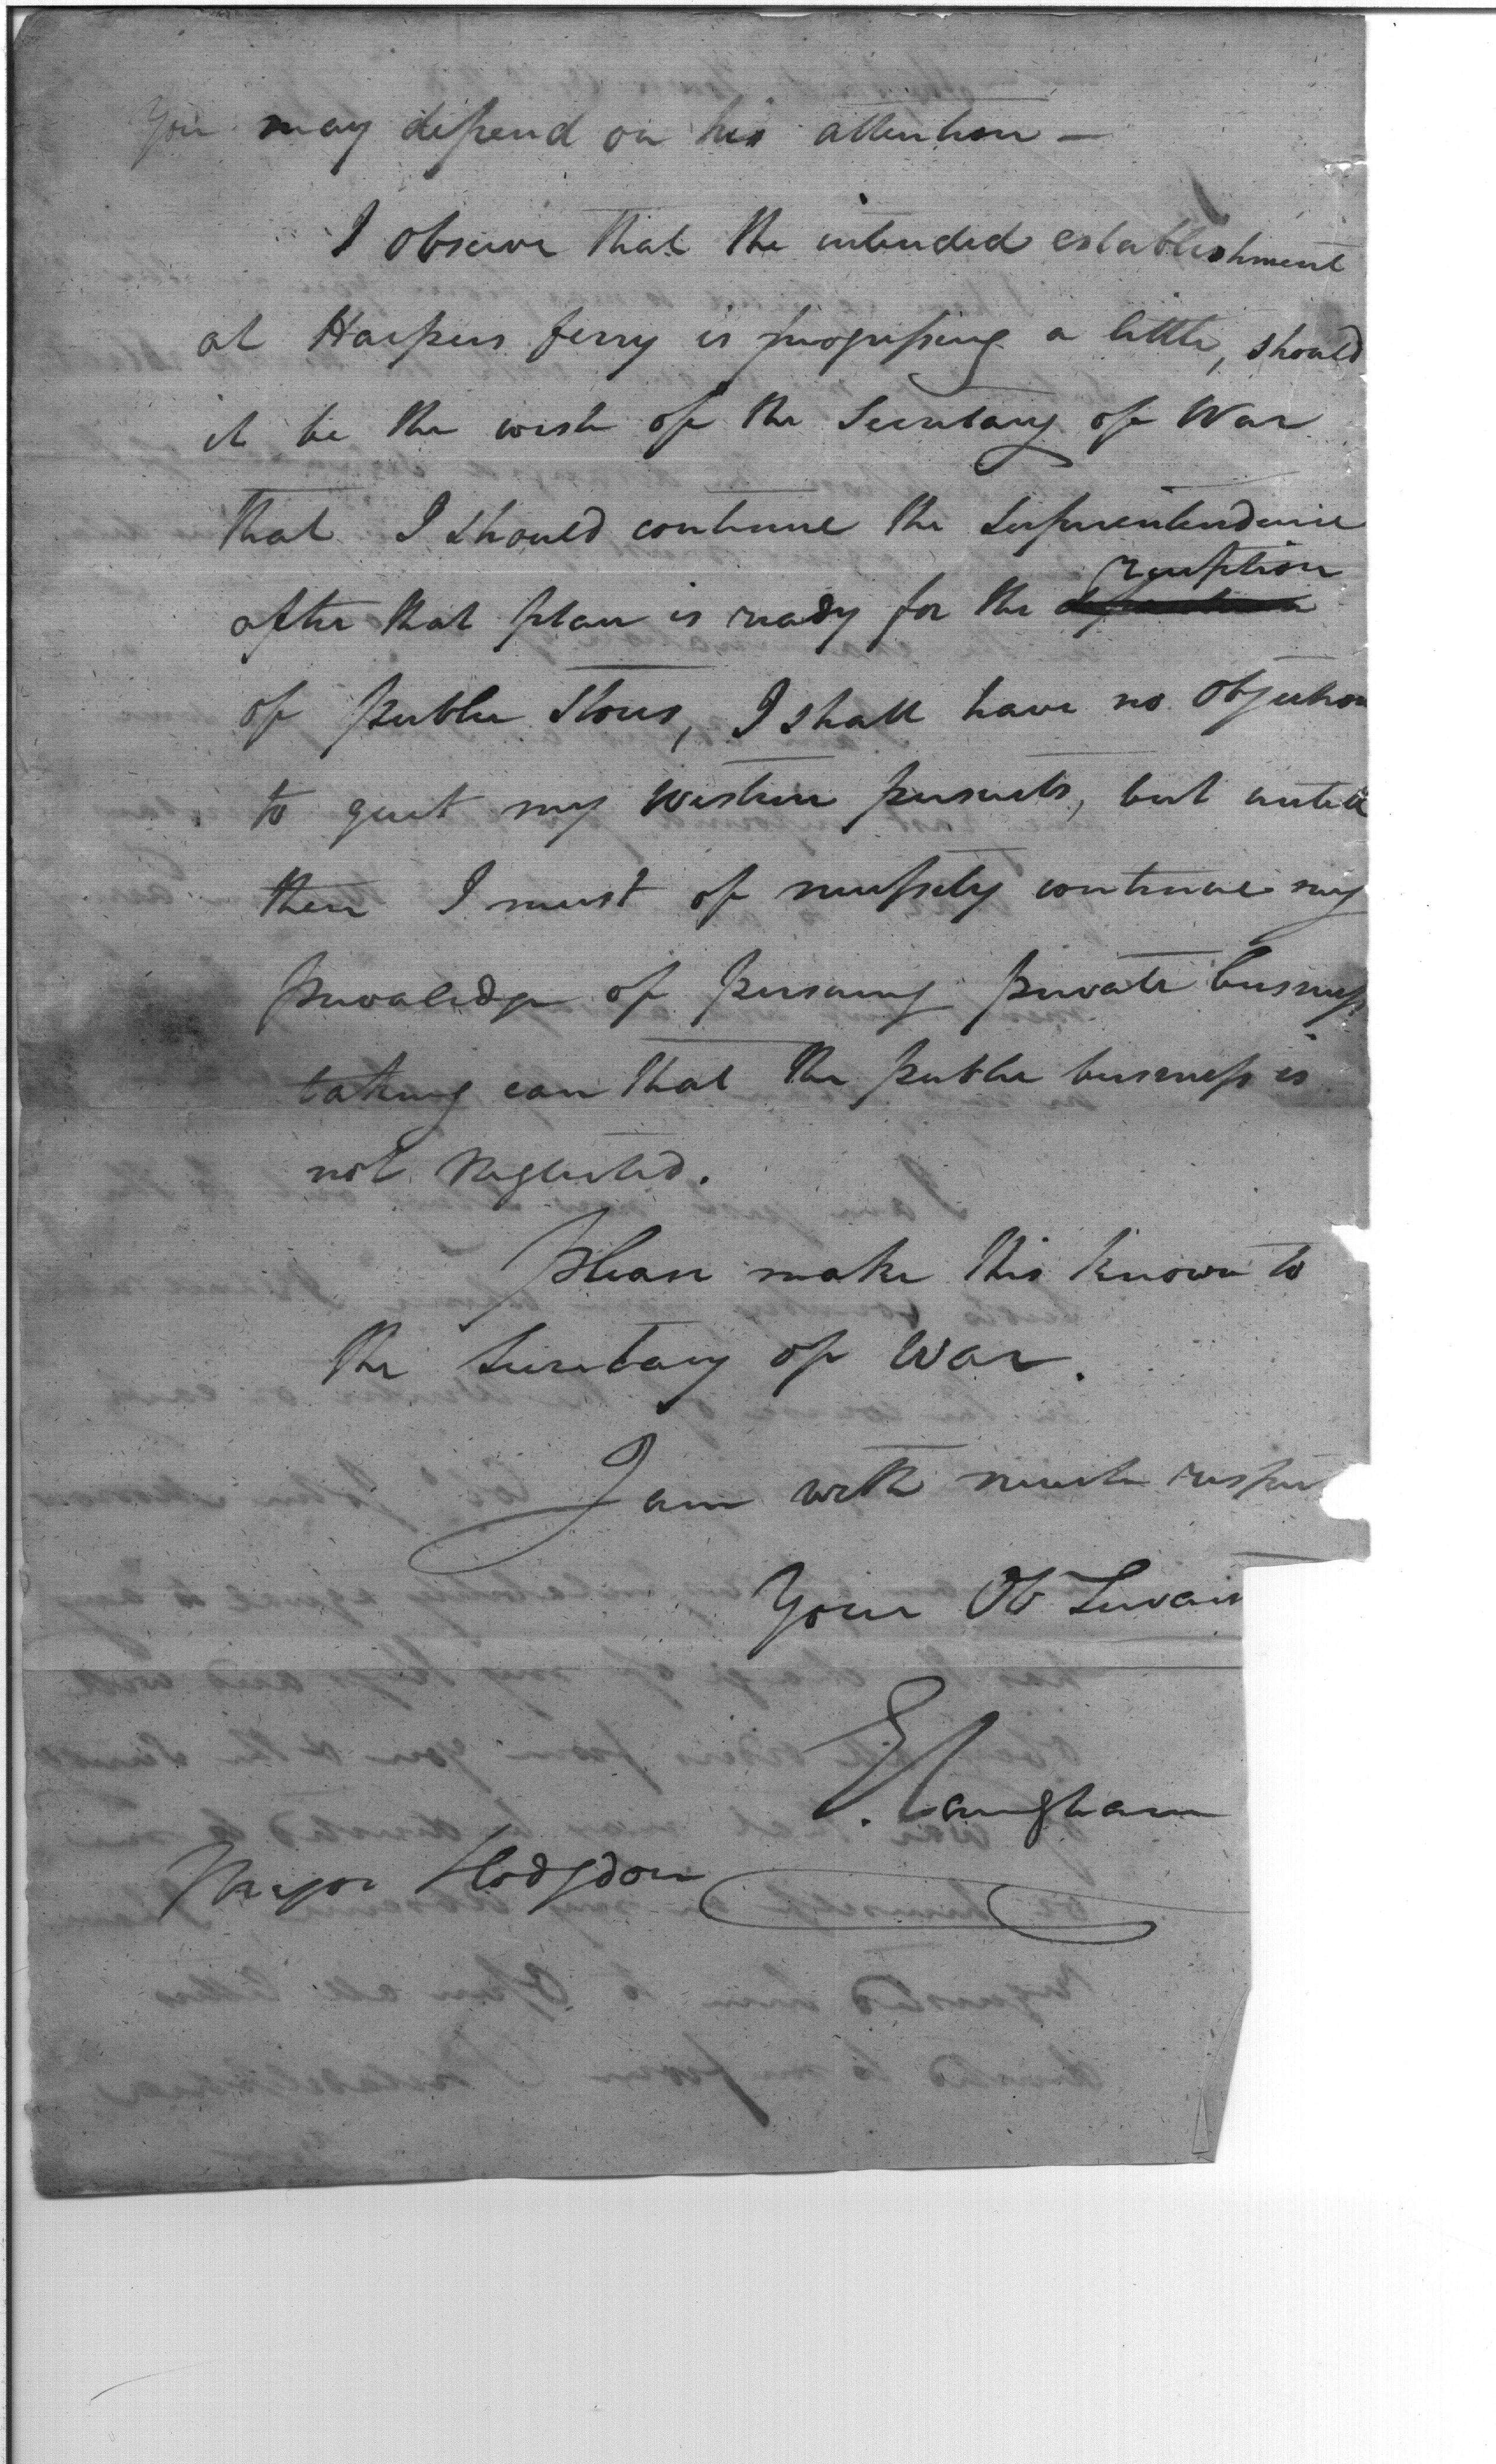 You may depend on his attention —
I observe that the intended establishment
at Harpers ferry is progressing a little, should
it be the wish of the Secretary of War
that I should continue the Superintendance
after that plan is ready for the reception
of public Stores, I shall have no objection
to quit my western pursuits, but untill
then I must of necessity continue my
privaledge of pursuing private business
taking care that the public business is
not neglected.
Please make this known to
the Secretary of War.
I am with much respect
Your Ob Servant
E. Langham
Major Hodgdon